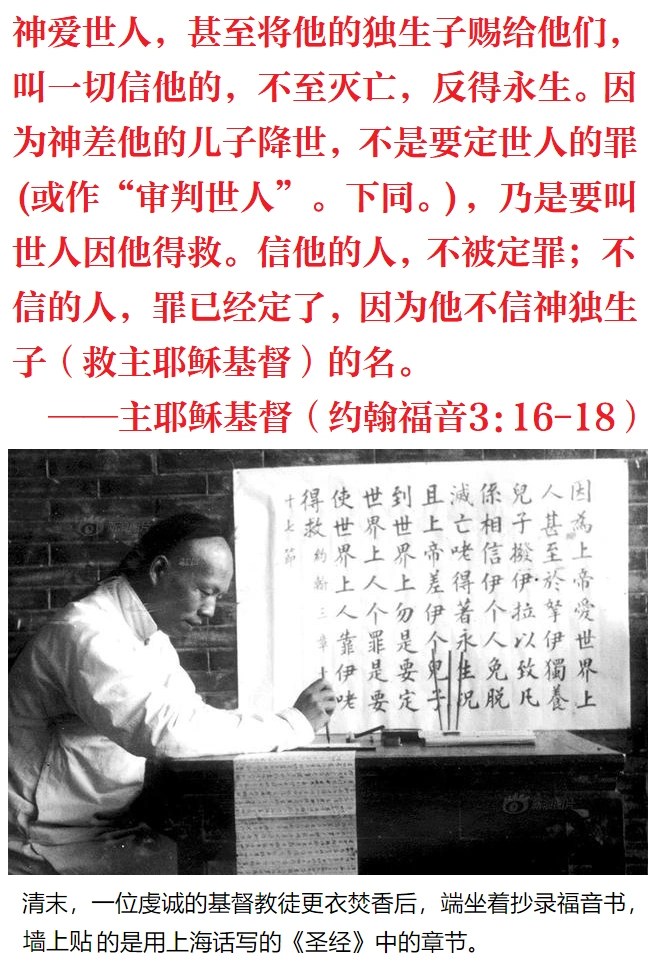 神爱世人，甚至将他的独生子赐给他们，
叫一切信他的，不至灭亡，反得永生。因
为神差他的儿子降世，不是要定世人的罪
(或作“审判世人”。下同。)，乃是要叫
世人因他得救。信他的人，不被定罪；不
信的人，罪已经定了，因为他不信神独生
子（救主耶稣基督）的名。
——主耶稣基督（约翰福音3:16-18）
因為上帝愛世界上
人甚至於拏伊獨養
兒子撥伊拉以致凡
係相信伊个人免脫
滅亡咾得著永生况
且上帝差伊个兒子
到世界上勿是要定
世界上人个罪是要
使世界上人靠伊咾
得救 約翰三章十
十七節
清末，一位虔诚的基督教徒更衣焚香后，端坐着抄录福音书，
墙上贴的是用上海话写的《圣经》中的章节。